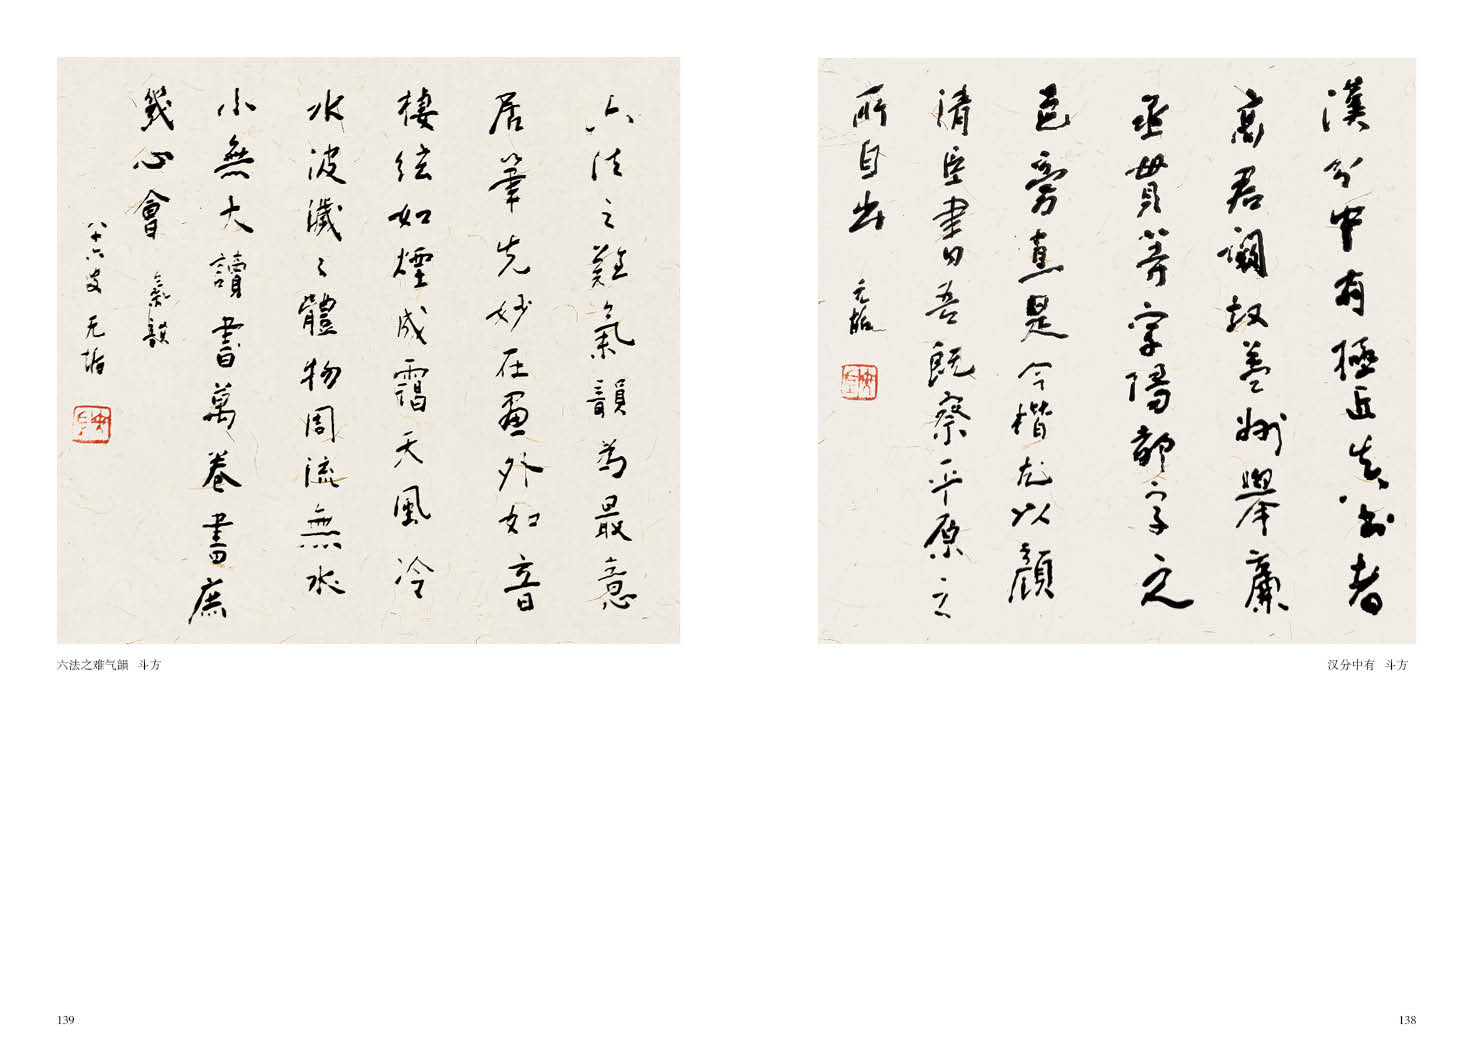 漢分中有極近真書者
高君闕故益州舉廉
丞貫等字陽都字之
邑旁直是今楷尤以顏
清臣書曰吾既察平原之
所自出
无垢
汉分中有 斗方
138
六法之難氣韻為最意
居筆先妙在畫外如音
棲絃如煙成靄天風泠
水波濊〻體物周流無水
小無大讀書萬卷書庶
幾心會
氣韻
八十六叟 无垢
六法之难气韻 斗方
139